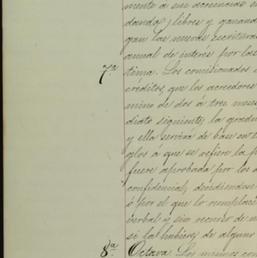 mente a sus acreencias
dando, libres y ganando
gan las nuevas escrituras
anual de interés por las
7ª tima. Los comisionados
créditos, que los acreedores
mino de dos á tres meses
diato siguiente, la
y ella servirá de base en
glos á que se refiere la
fuere aprobada por los
confidencial, decidiendose
ó por el que lo
verbal y sin recurso de
si la hubiere de alguno
8ª Octava. Los mismos